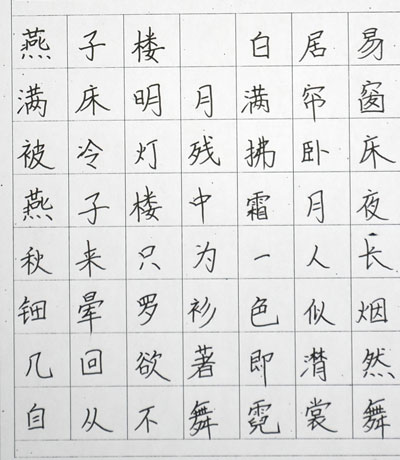 燕子楼 白居易
满床明月满帘窗
被冷灯残拂卧床
燕子楼中霜月夜
秋来只为一人长
钿晕罗衫色似烟
几回欲著即潸然
自从不舞霓裳舞